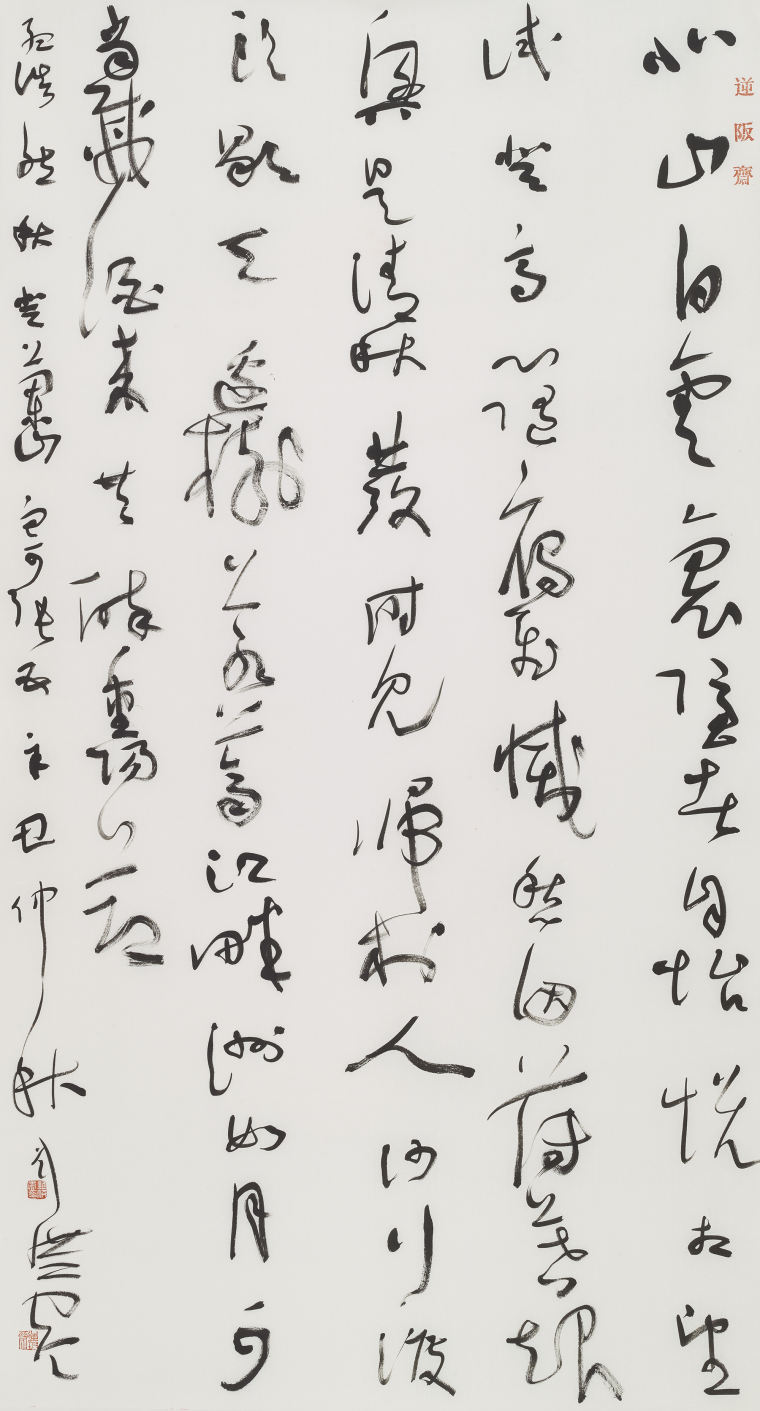 逆阪齋
北山白雲裏隱者自怡悅相望
試登高心隨雁飛滅愁因薄暮起
興是清秋發時見歸村人沙行渡
頭歇天邊樹若薺江畔洲如月何
當載酒來共醉重陽節
孟浩然秋登蘭山寄張五辛丑仲秋